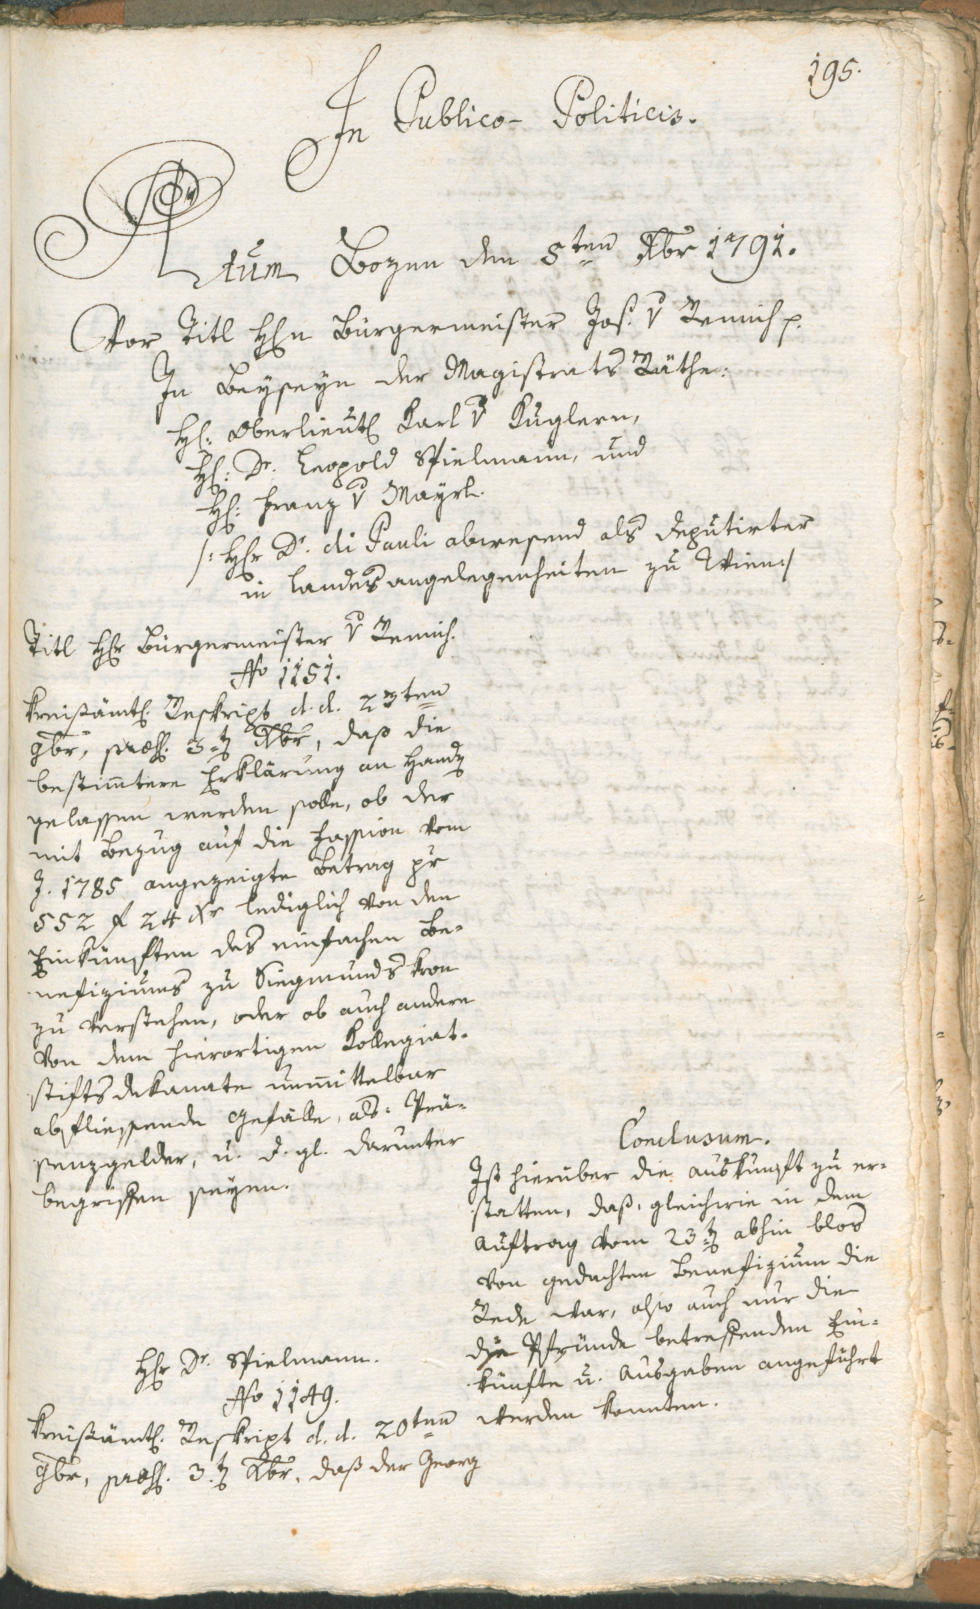 195.
In Publico-Politicis.
Actum Bozen den 5ten Xbr 1791.
Vor Titl Hhn Bürgermeister Jos: v Remich p.
In Beyseyn der Magistrats Räthe:
Hh: Oberlieut: Karl v Kuglern,
Hh: Dr. Leopold Spielmann, und
Hh: Franz v Mayrl.
/: Hhr Dr. di Pauli abwesend als Deputirter
in Landesangelegenheiten zu Wien:/
Titl Hhr Bürgermeister v Remich.
No 1151.
Kreisämtl: Reskript d. d. 23ten
9br, praes: 3t Xbr, daß die
bestimtere Erklärung an Handen
gelassen werden solle, ob der
mit Bezug auf die Fassion vom
J. 1785 angezeigte Betrag pr
552 f 24 xr lediglich von den
Einkünften des einfachen Be-
nefiziums zu Siegmundskron
zu verstehen, oder ob auch andere
von dem hierortigen Kollegiat-
stiftsdekanate unmittelbar
abfliessende Gefälle, als: Prä-
senzgelder, u. d. gl. darunter
begriffen seyen.
Conclusum.
Ist hierüber die Auskunft zu er-
statten, daß, gleichwie in dem
Auftrag vom 23t abhin blos
von gedachten Benefizium die
Rede war, also auch nur die
diese Pfründe betreffenden Ein-
künfte u. Ausgaben angeführt
werden konnten.
Hhr Dr. Spielmann.
No 1149.
Kreisämtl: Reskript d. d. 20ten
9br, praes: 3.t Xbr, daß der Georg